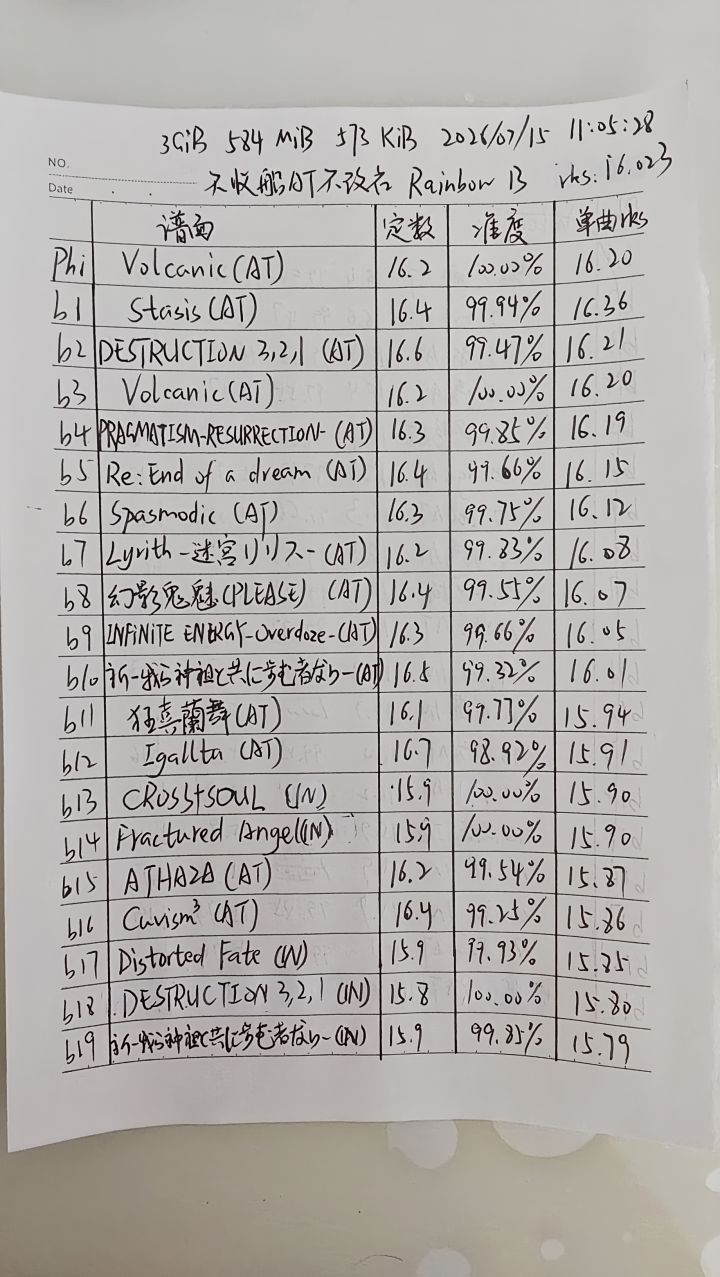 3GiB 584 MiB 573 KiB 2026/07/15 11:05:28
NO.
Date . . 不收船AT不改名 Rainbow B rks: 16.023
谱面 定数 准度 单曲rks
Phi Volcanic(AT) 16.2 100.00% 16.20
b1 Stasis(AT) 16.4 99.94% 16.36
b2 DESTRUCTION 3,2,1 (AT) 16.6 99.47% 16.21
b3 Volcanic(AT) 16.2 100.00% 16.20
b4 PRAGMATISM-RESURRECTION-(AT) 16.3 99.85% 16.19
b5 Re:End of a dream (AT) 16.4 99.66% 16.15
b6 Spasmodic (AT) 16.3 99.75% 16.12
b7 Lyrith-迷宮リリス-(AT) 16.2 99.83% 16.08
b8 幻影鬼魅(PLEASE) (AT) 16.4 99.55% 16.07
b9 INFiNiTE ENERGY-Overdoze-(AT) 16.3 99.66% 16.05
b10 祈-我ら神祖と共に歩む者なり-(AT) 16.5 99.32% 16.01
b11 狂喜蘭舞(AT) 16.1 99.77% 15.94
b12 Igallta (AT) 16.7 98.92% 15.91
b13 CROSS+SOUL (IN) 15.9 100.00% 15.90
b14 Fractured Angel(IN) 15.9 100.00% 15.90
b15 ATHAZA (AT) 16.2 99.54% 15.87
b16 Cuvism³ (AT) 16.4 99.25% 15.86
b17 Distorted Fate (IN) 15.9 99.93% 15.85
b18 DESTRUCTION 3,2,1 (IN) 15.8 100.00% 15.80
b19 祈-我ら神祖と共に歩む者なり-(IN) 15.9 99.85% 15.79